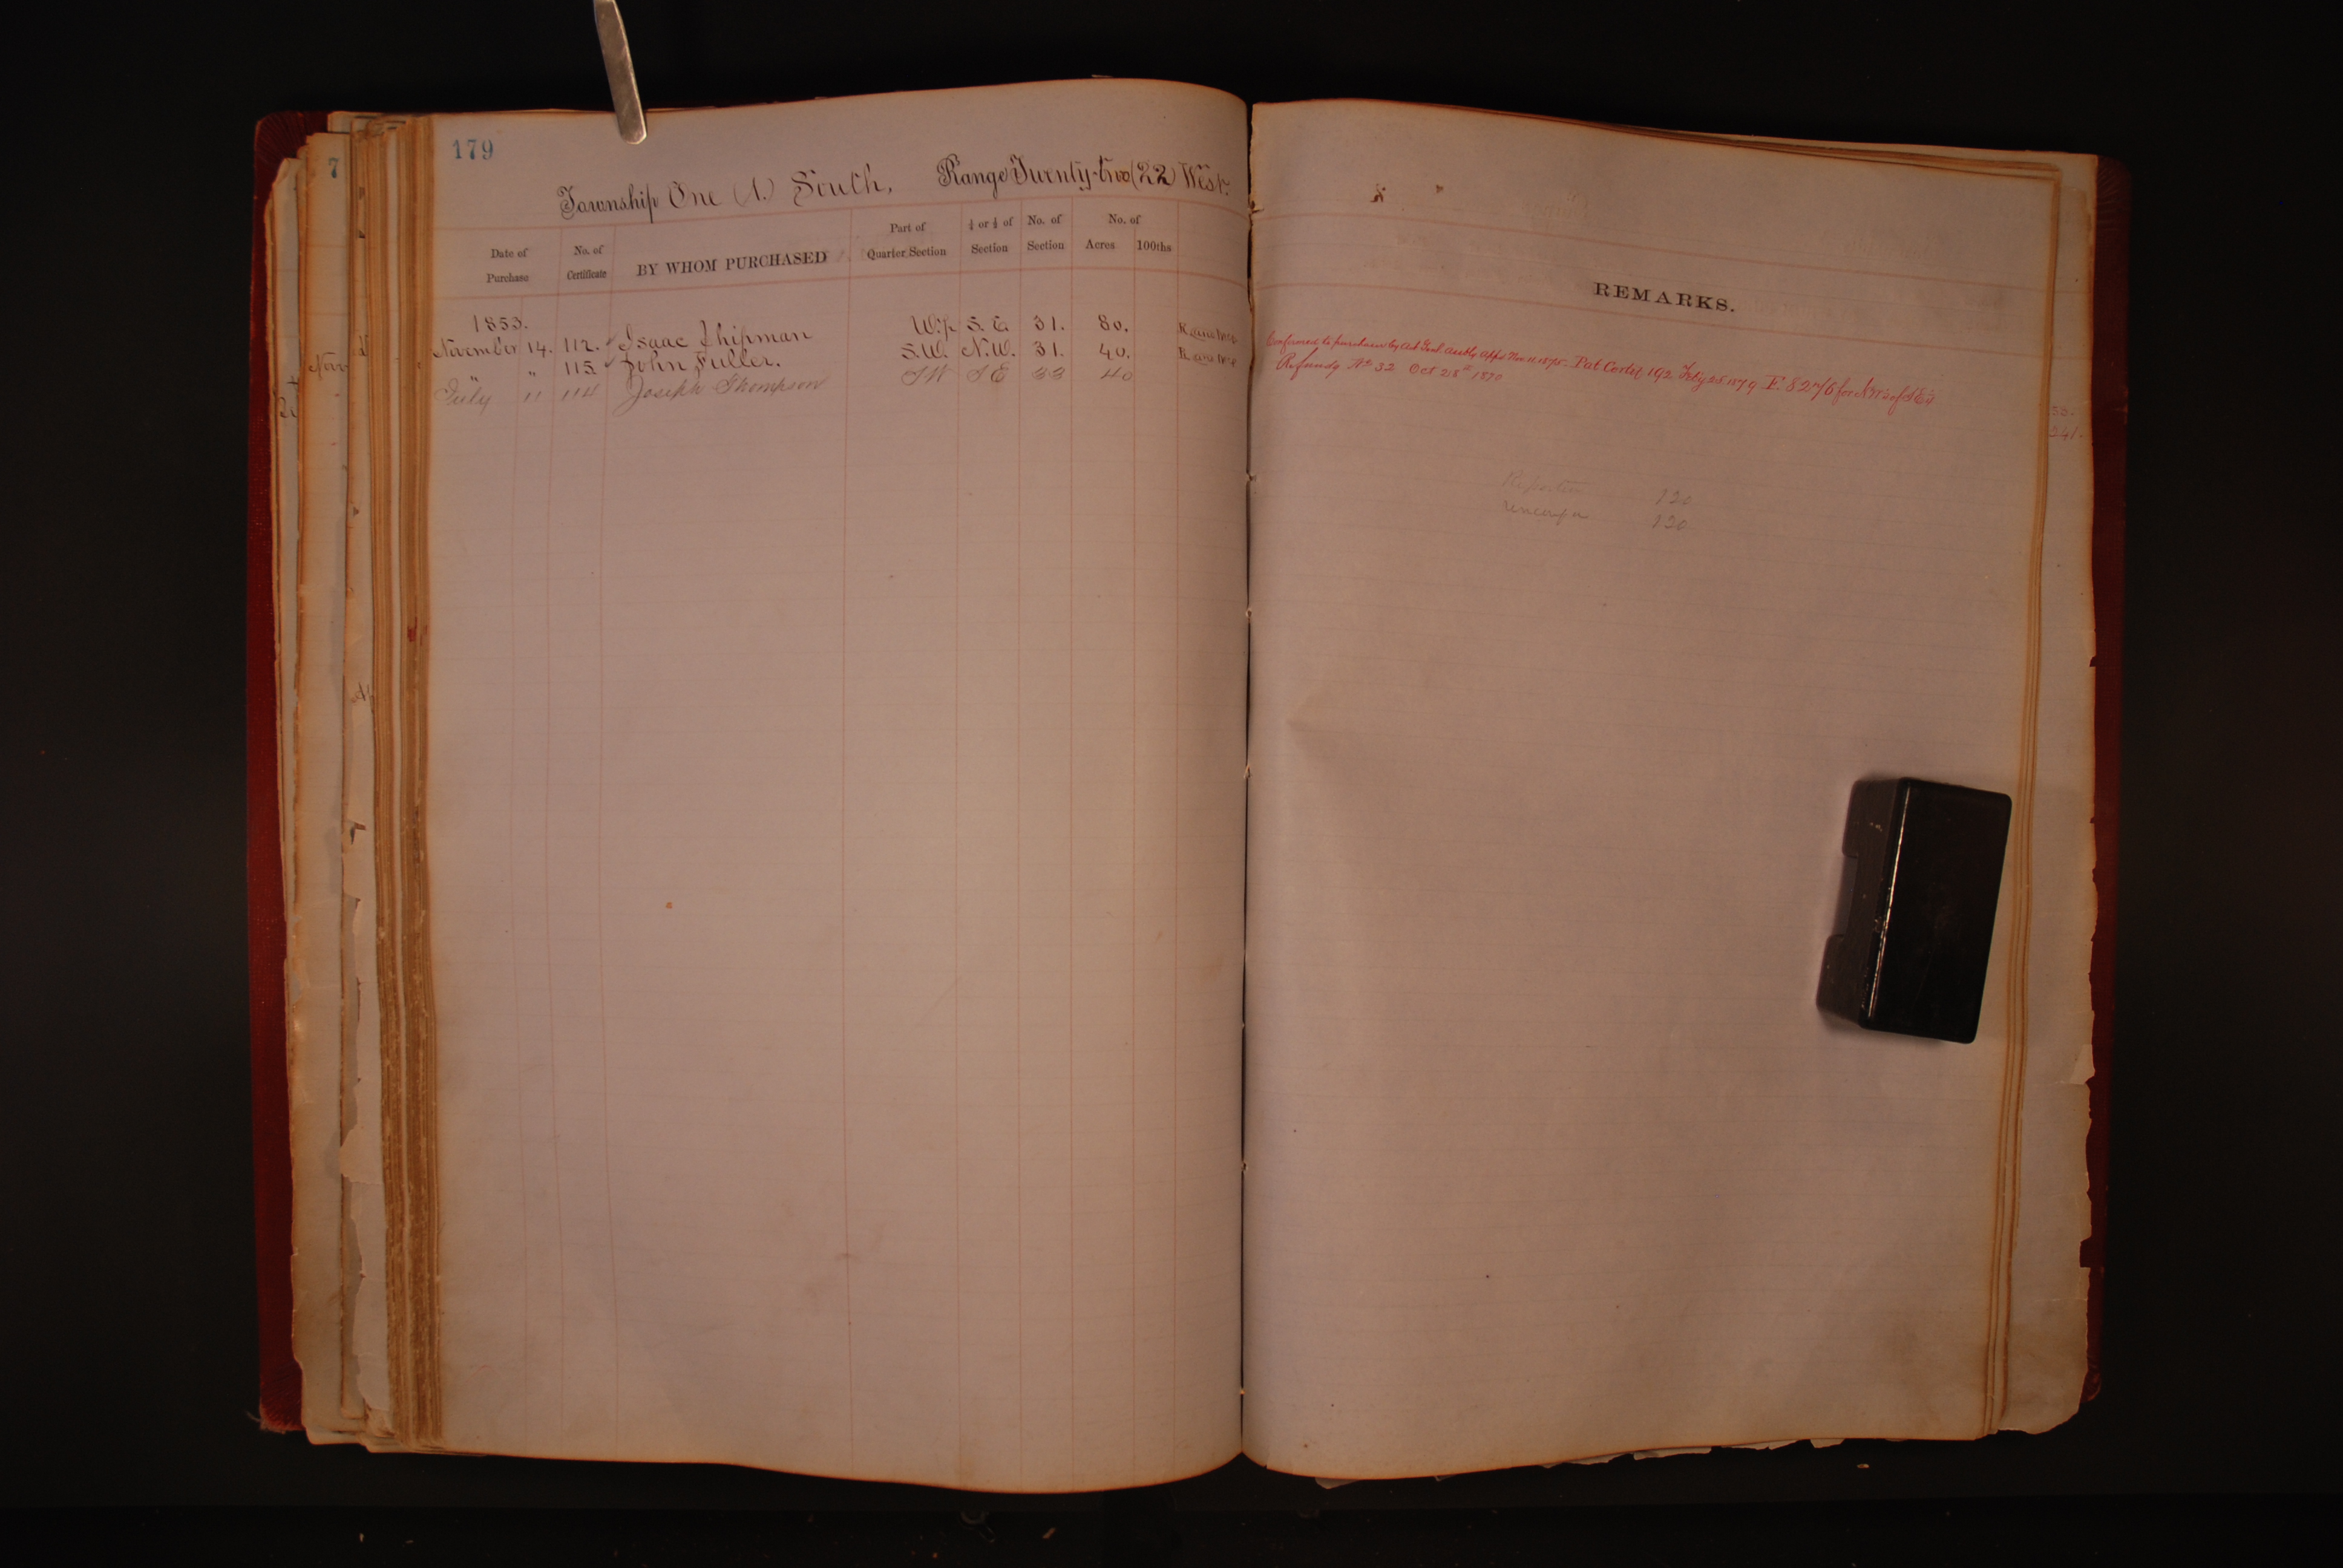 179
7
Township One (1.) South, Range Twenty-two (22) West.
Date of Purchase
No. of Certificate
BY WHOM PURCHASED
Part of Quarter Section
¼ or ½ of Section
No. of Section
No. of Acres 100ths
REMARKS.
1853.
November 14. 112. Isaac Shipman W.½ S.E. 31. 80.
" " 115 John Fuller. S.W. N.W. 31. 40.
July 11 114 Joseph Thompson SW SE 33 40
Confirmed to purchaser by Act Genl Assbly appd Nov. 11. 1875. Pat Certif 192 Feby 25 1879
Refundg No 32 Oct 28th 1870
120
120
241.